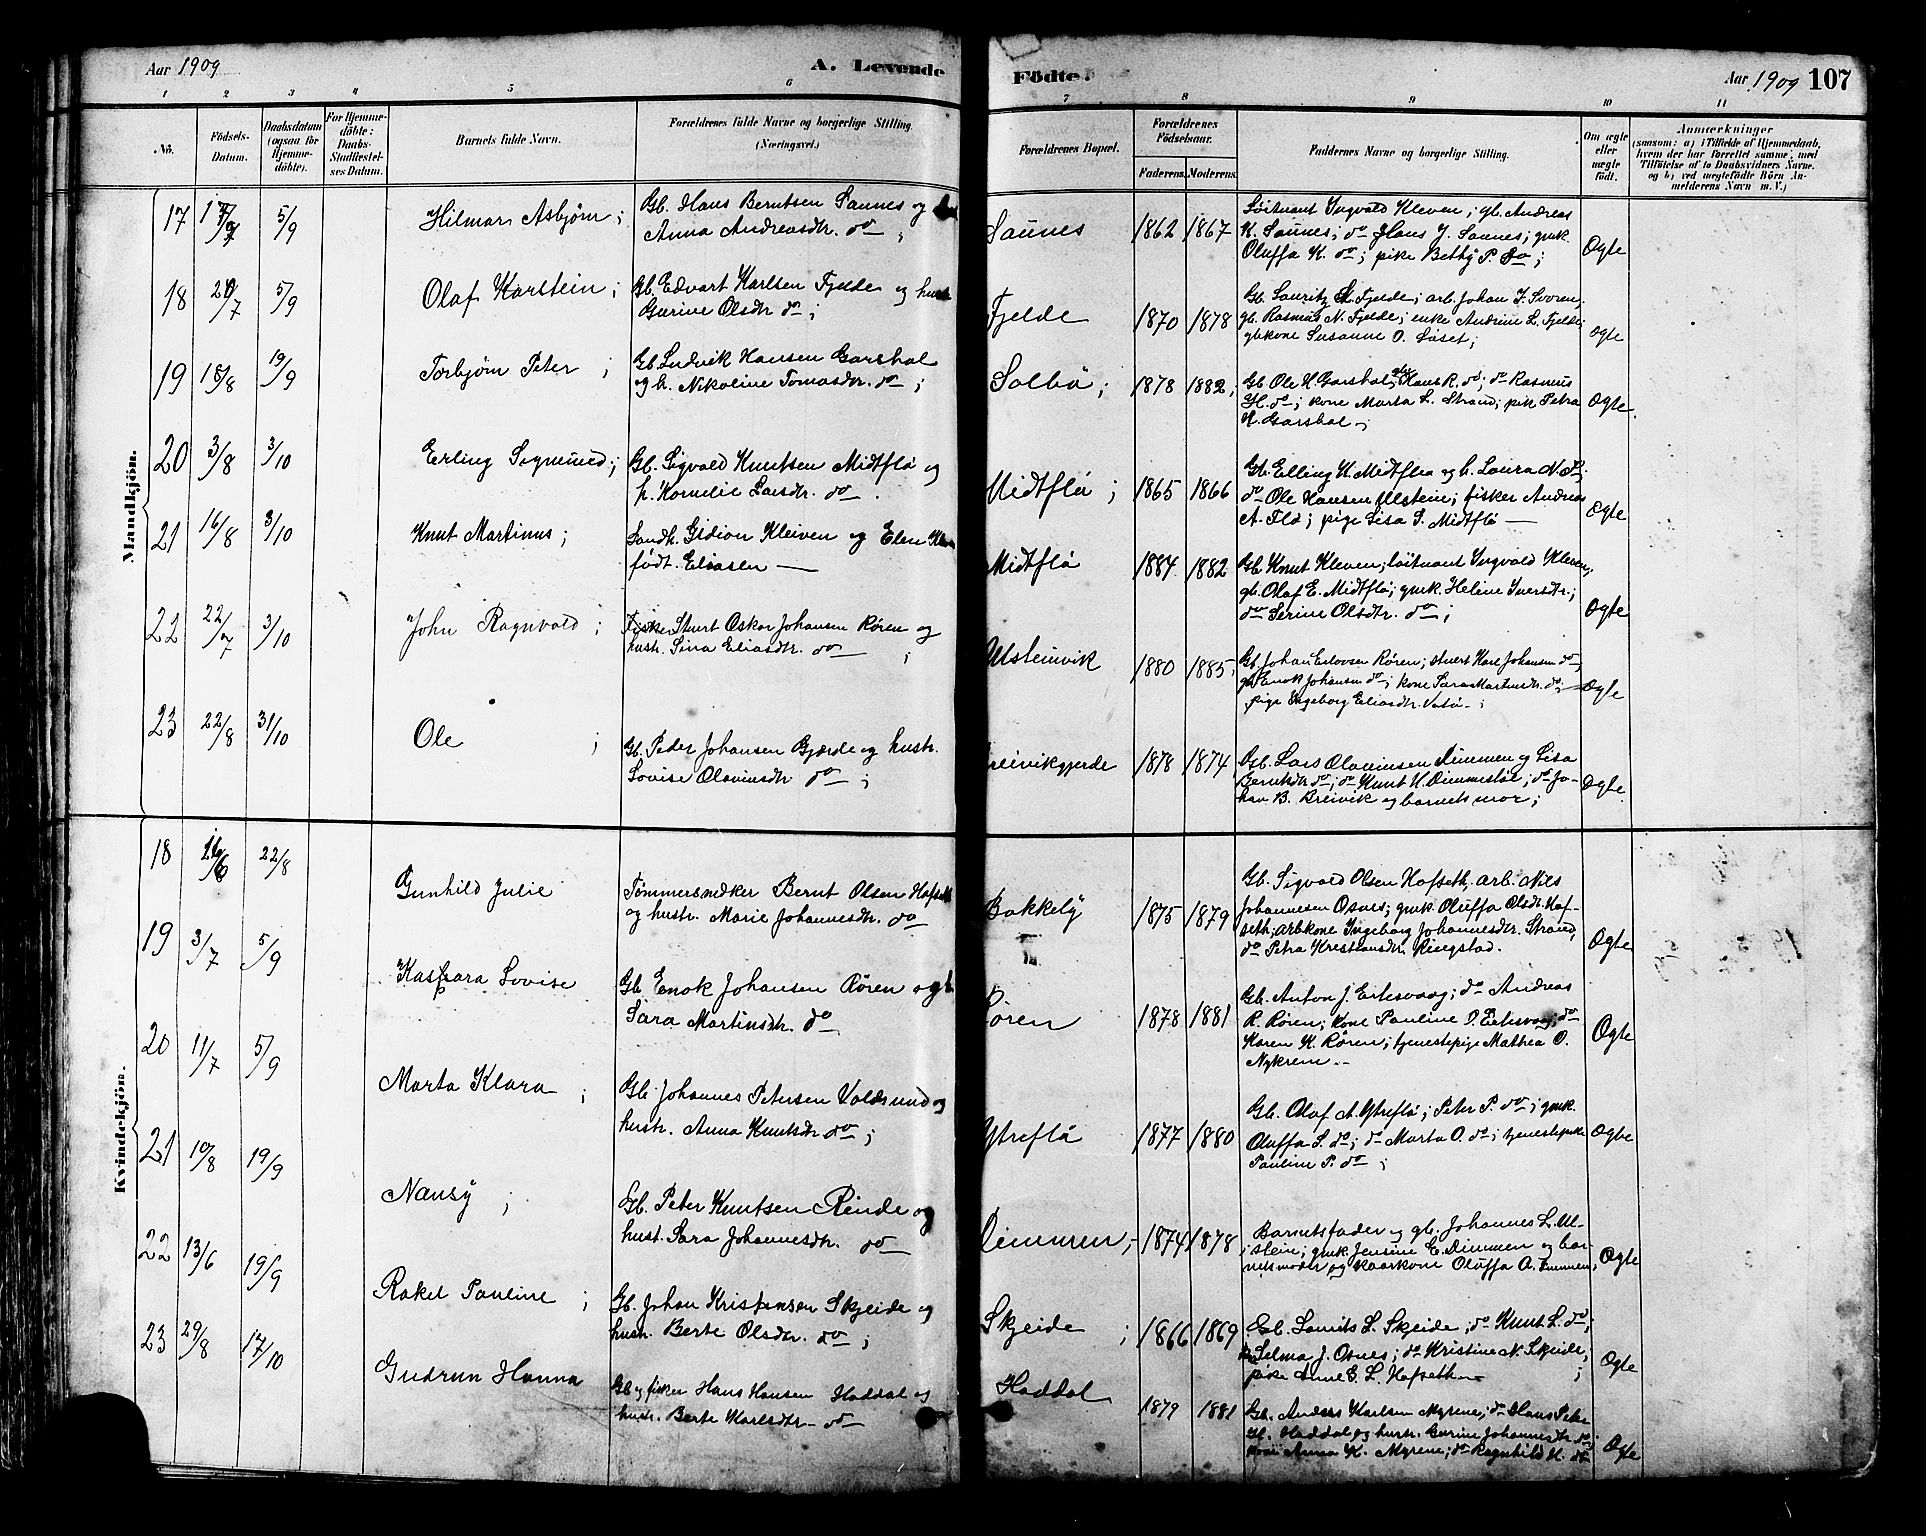 Aar 1909
A. Levende
Födte.
Aar 1909 107
1 2 3 4 5 6 7 8 9 10 11
No.
Födsels-
Datum.
Daabsdatum
(ogsaa for
Hjemme-
döbte).
For Hjemme-
döbte:
Daabs-
Stadfæstel-
ses Datum.
Barnets fulde Navn.
Forældrenes fulde Navne og borgerlige Stilling.
(Næringsvei.)
Forældrenes Bopæl.
Forældrenes
Födselsaar.
Faderens. Moderens.
Faddernes Navne og borgerlige Stilling.
Om ægte
eller
uægte
födt.
Anmærkninger
(saasom: a) i Tilfælde af Hjemmedaab,
hvem der har forrettet samme, med
Tilföielse af to Daabsvidners Navne,
og b) ved uægtefödte Börn An-
melderens Navn m. V.)
Mandkjön.
17 17/7 5/9 Hilmar Asbjørn;
Gb. Hans Berntsen Saunes og
Anna Andreasdtr. do;
Saunes 1862 1867
Løitnant Ingvald Kleven; gb. Andreas
K. Saunes; do Hans J. Saunes; gmk.
Oluffa K. do; pike Betty P. do;
Ægte
18 20/7 5/9 Olaf Karstein;
Gb. Edvart Karlsen Fjelde og hustr
Gurine Olsdtr do;
Fjelde 1870 1878
Gb. Lauritz K. Fjelde; arb. Johan J. Svoren;
gb. Rasmus N. Fjelde; enke Andrine L. Fjelde;
gbkone Susanne O. Løset;
Ægte
19 18/8 19/9 Torbjørn Peter;
Gb. Ludvik Hansen Garshol
og h. Nikoline Tomasdtr. do;
Solbø; 1878 1882;
Gb. Ole H. Garshol, Hans R. do; do Rasmus
H. do; kone Marta L. Strand; pik Petra
K. Garshol;
Ægte.
20 3/8 3/10 Erling Sigmund;
Gb. Sigvald Knutsen Midtflø og
h. Kornelie Larsdtr. do.
Midtflø; 1865 1866
Gb. Elling K. Midtflø og h. Laura N. D.;
do Ole Hansen Ulstein; fisker Andreas
A. Flø; pige Lisa S. Midtflø
Ægte
21 16/8 3/10 Knut Martinus;
Landh. Gidion Kleiven og Elen Kleven
født. Eliasen
Midtflø 1884 1882
Gb. Knut Kleven; løitnant Ingvald Kleven;
gb. Olaf E. Midtflø; gmk. Heline Iversdtr.;
do Serine Olsdtr. do;
Ægte
22 22/7 3/10 John Ragnvald;
Fisker Sturt Oskar Johansen Røren og
hustr. Sina Eliasdtr. do;
Ulsteinvik 1880 1885;
Gb. Johan Erlovsen Røren; stuert Karl Johansen do;
gb. Enok Johansen do; kone Sara Martinsdtr. do;
pige Ingeborg Eliasdtr. Vatø;
Ægte
23 22/8 31/10 Ole;
Gb. Peder Johansen Gjærde og hustr.
Lovise Olavinsdtr do;
Breivikgjerde 1878 1874
Gb. Lars Olavinsen Dimmen og Lisa
Berntsdtr do; do Knut K. Dimmestøl; do Jo-
han B. Breivik og barnets mor;
Ægte.
Kvindekjön.
18 16/6 22/8 Gunhild Julie
Tømmersnekker Bernt Olsen Hofseth
og hustr. Marie Johannesdtr. do
Bakkeby 1875 1879
Gb. Sigvald Olsen Hofseth, arb. Nils
Johannesen Osnes; gmk Oluffa Olsdtr. Hof-
seth; arbkone Ingeborg Johannesdtr. Strand,
do Petra Kristiansdtr Ringstad.
Ægte
19 3/7 5/9 Kaspara Lovise
Gb. Enok Johansen Røren og h
Sara Martinsdtr. do
Røren 1878 1881
Gb. Anton J. Eiksvaag; do Andreas
R. Røren; kone Pauline D. Eiksvaag; do
Karen K. Røren; tjenestepige Mathea O.
Nykrem
Ægte
20 11/7 5/9 Marta Klara;
Gb. Johannes Petersen Valdsund og
hustr. Anna Knutsdtr do;
Ytreflø 1877 1880
Gb. Olaf A. Ytreflø; Peter P. do; gmk.
Oluffa S. do; do Marta O. do; tjenestepike
Pauline P. do;
Ægte
21 10/8 19/9 Nansy;
Gb. Peter Knutsen Rinde og
hust. Sara Johannesdtr. do
Dimmen; 1874 1878
Barnetsfader og gb. Johannes L. Ul-
stein; gmk. Jensine E. Dimmen og bar-
netsmoder og kaarkone Oluffa A. Dimmen;
Ægte
22 13/6 19/9 Rakel Pauline;
Gb. Johan Kristensen Skjeide og
hustr. Berte Olsdtr. do;
Skjeide; 1866 1869
Gb. Laurits L. Skjeide; do Knut L. do;
Selma J. Osnes; do Kristine N. Skjeide;
pike Anne G. L. Hofseth;
Ægte
23 29/8 17/10 Gudrun Hanna
Gb og fisker Hans Hansen Haddal og
hustr. Berte Karlsdtr do
Haddal 1879 1881
Gb. Anders Karlsen Myrene; do Hans Peter
H. Haddal og hustr. Gurine Johannesdtr do;
kone Anna K. Myrene; do Ragnhild H. do
Ægte